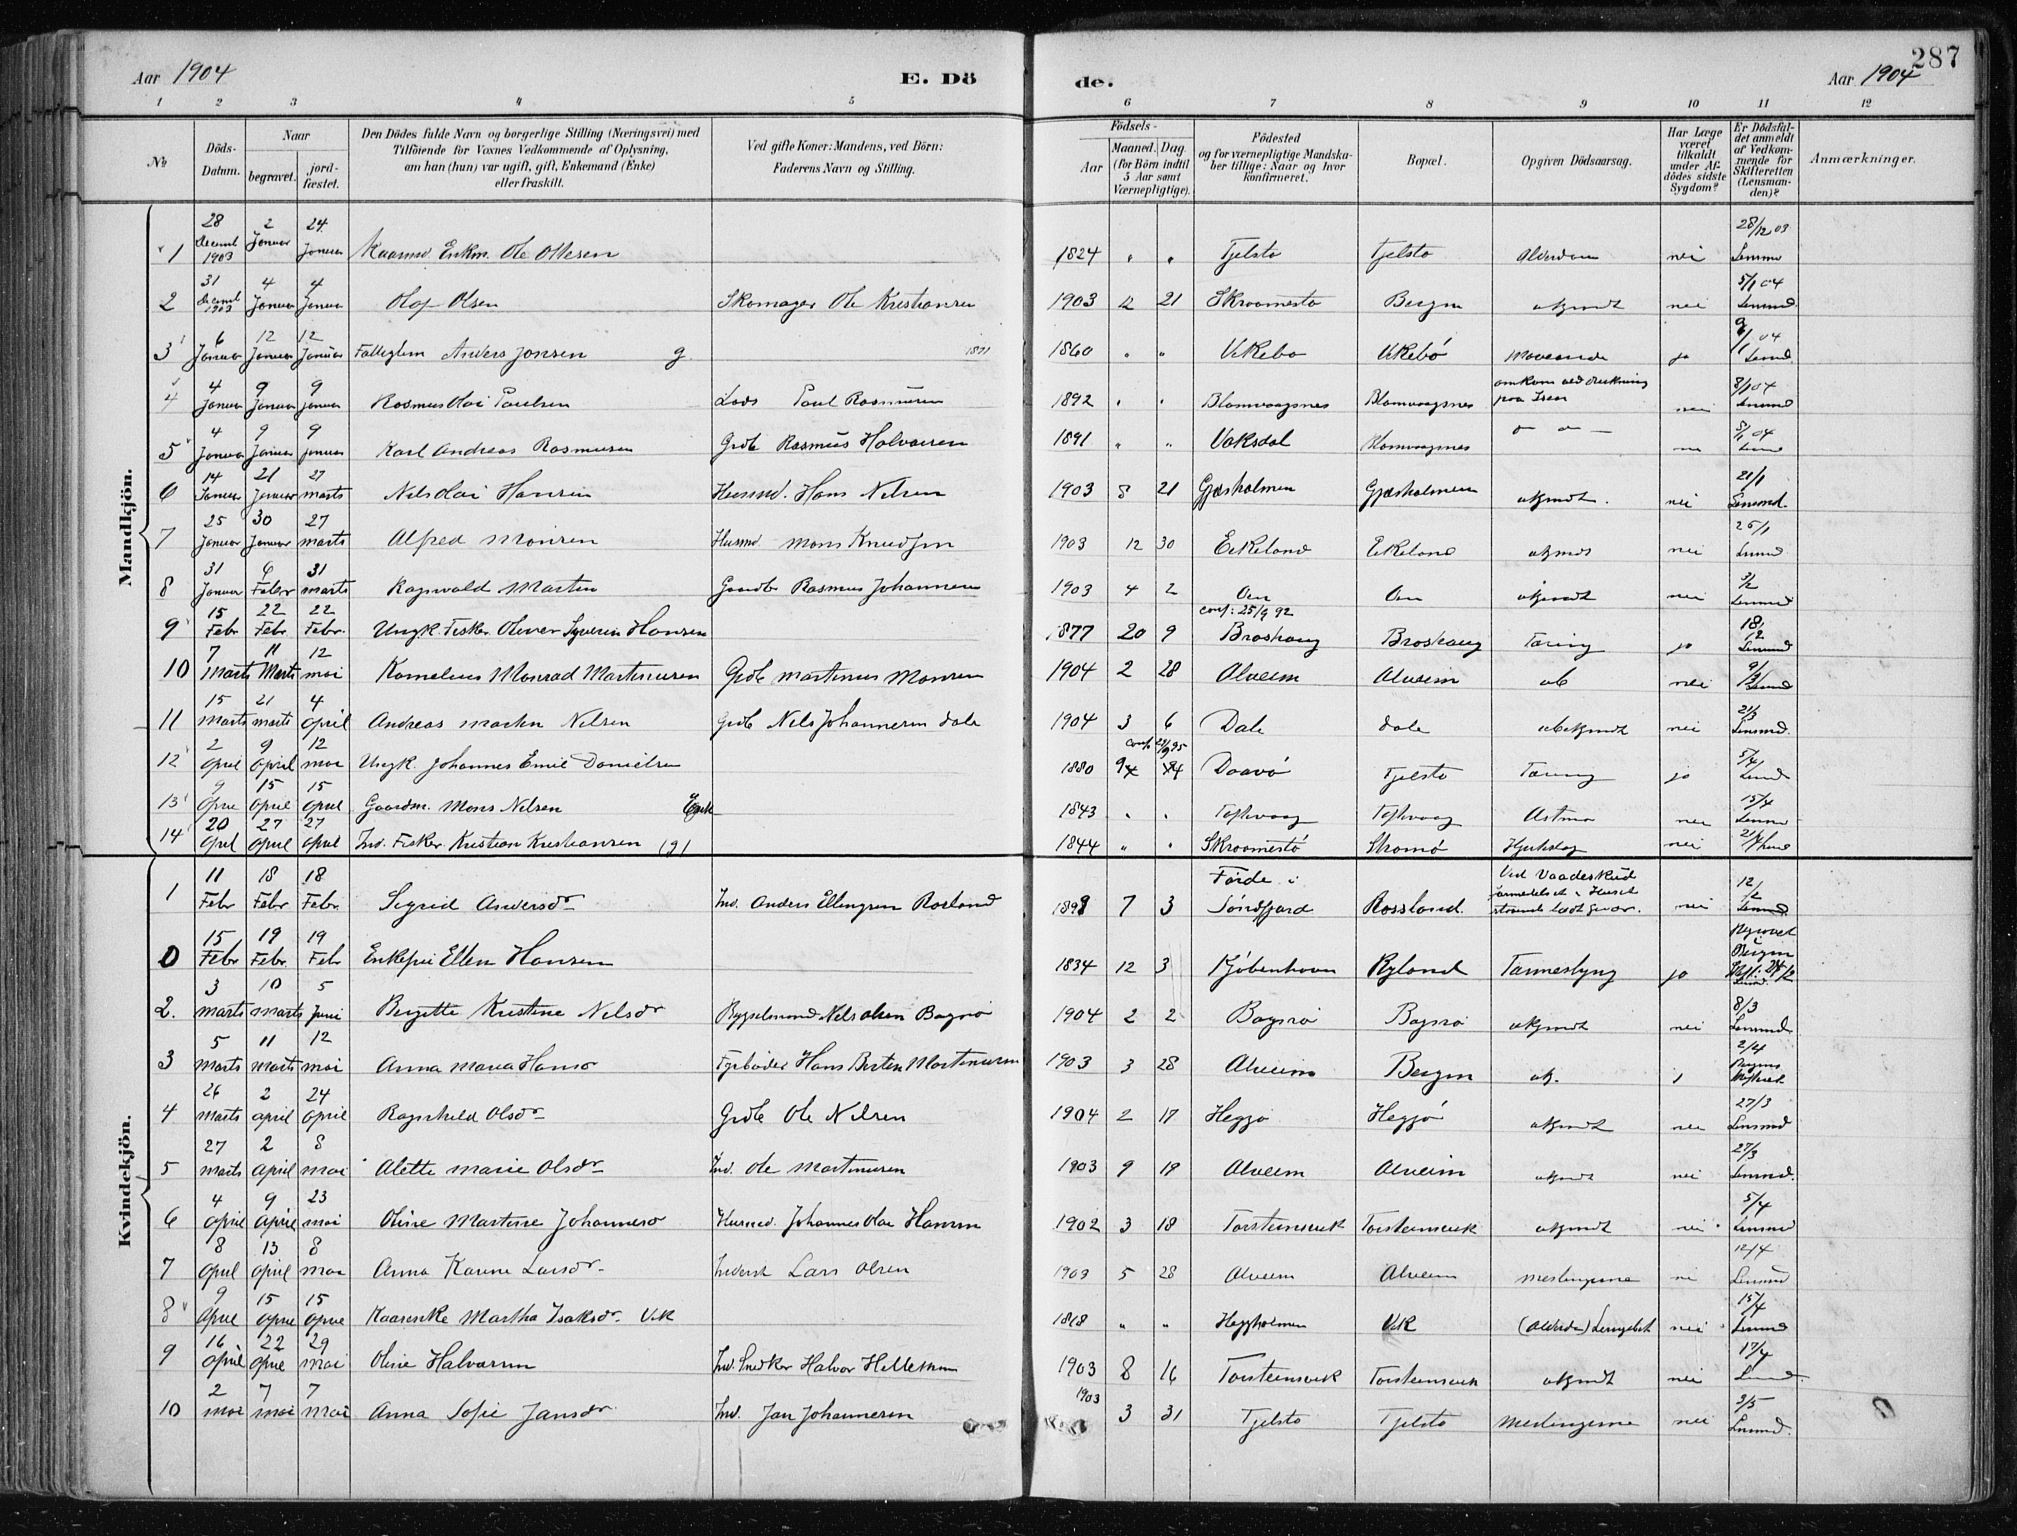 287
Aar 1904 E. Dö de. Aar 1904
1 2 3 4 5 6 7 8 9 10 11 12
No
Döds-Datum.
Naar
begravet.
jord-fæstet.
Den Dödes fulde Navn og borgerlige Stilling (Næringsvei) med
Tilföiende for Voxnes Vedkommende af Oplysning,
om han (hun) var ugift, gift, Enkemand (Enke)
eller fraskilt.
Ved gifte Koner: Mandens, ved Börn:
Faderens Navn og Stilling.
Födsels-
Aar
Maaned. Dag.
(for Börn indtil
5 Aar samt
Værnepligtige).
Födested
og for værnepligtige Mandska-
ber tillige: Naar og hvor
konfirmeret.
Bopæl.
Opgiven Dödsaarsag.
Har Læge
været
tilkaldt
under Af-
dödes sidste
Sygdom?
Er Dödsfal-
det anmeldt
af Vedkom-
mende for
Skifteretten
(Lensman-
den)?
Anmærkninger.
Mandkjön.
1 28 Decemb 1903 2 Januar 24 Januar Kaarmd Enkm. Ole Ottesen 1824 " " Tjelstø Tjelstø Alderdom nei 28/12 03 Lensmd
2 31 Decemb 1903 4 Januar 4 Januar Olaf Olsen Skomager Ole Kristiansen 1903 12 21 Skraamestø Bergen ukjendt nei 5/1 04 Lensmd.
3 6 Januar 12 Januar 12 Januar Anders Jonsen g. 1871 1860 " " Vikebø Vikebø Mavesaar ja 9/1 04 Lensmd.
4 4 Januar 9 Januar 9 Januar Rasmus Olai Paulsen Lods Paul Rasmussen 1892 " " Blomvaagnes Blomvaagnes omkom ved drukning paa Isen nei 8/1 04 Lensmd
5 4 Januar 9 Januar 9 Januar Karl Andreas Rasmussen Grdb Rasmus Halvorsen 1891 " " Vaksdal Blomvaagnes nei 8/1 04 Lensmd
6 14 Januar 21 Januar 27 Marts Nils Olai Hansen Husmd. Hans Nilsen 1903 8 21 Gjæsholmen Gjæsholmen ukjendt. nei 21/1 Lensmd.
7 25 Januar 30 Januar 27 Marts Alfred Monsen Husmd Mons Knudsen 1903 12 30 Eikeland Eikeland ukjendt nei 26/1 Lensmd
8 31 Januar 6 Febr 31 Marts Ragnvald Martin Gaardbr Rasmus Johannesen 1903 4 2 Oen Oen ukjendt nei 3/2 Lensmd
9 15 Febr. 22 Febr 22 Febr. Ungk. Fisker Oliver Syverin Hansen 1877 20 9 conf: 25/9 92 Broshaug Broshaug Tæring ja 18/2 Lensmd
10 7 Marts 11 Marts 12 Mai Kornelius Monrad Martinusen Grdb Martinus Monsen 1904 2 28 Alveim Alveim uk nei 9/3 Lensmd
11 15 Marts 21 Marts 4 April Andreas Martin Nilsen Grdb Nils Johannesen Dale 1904 3 6 Dale Dale ubekjendt nei 21/3 Lensmd.
12 2 April 9 April 12 Mai Ungk. Johannes Emil Danielsen 1880 conf 29/9 95 Daavø Tjelstø Tæring ja 5/4 Lensmd
13 9 April 15 April 15 April Gaardm. Mons Nilsen Enk 1843 " " Toftevaag Toftevaag Astma nei 15/4 Lensmd
14 20 April 27 April 27 April Ind. Fisker Kristian Kristiansen (g) 1844 " " Skraamestø Stramø Hjerteslag nei 21/4 Lensmd
Kvindekjön.
1 11 Febr 18 Febr. 18 Febr. Sigrid Andersdr Ind. Anders Ellingsen Rosland 1898 7 3 Förde i Söndfjord Rossland. Ved Vaadeskud i Huset staaende ladt Gevær. nei 12/2 Lensmd
0 15 Febr 19 Febr. 19 Febr Enkefru Ellen Hansen 1834 12 3 Kjöbenhavn Ryland Tarmeslyng ja Bergen
2. 3 Marts 10 Marts 5 Juni Bergitte Kristine Nilsdr Bygselmand Nils Olsen Bagnø 1904 2 2 Bagnø Bagnø ukjendt nei 8/3 Lensmd
3 5 Marts 11 Marts 12 Mai Anna Maria Hansdr Fyrböder Hans Berten Martinusen 1903 3 28 Alveim Bergen uk. 2/4
4 26 Marts 2 April 24 April Ragnhild Olsdr Grdb Ole Nilsen 1904 2 17 Hegjø Hegjø ukjendt nei 27/3 Lensmd
5 27 Marts 2 April 8 Mai Alette Marie Olsdr Ind. Ole Martinusen 1903 9 19 Alveim Alveim ukjendt nei 27/3 Lensmd.
6 4 April 9 April 23 Mai Oline Martine Johannesdr Husmd. Johannes Olai Hansen 1902 3 18 Torsteinsvik Torsteinsvik ukjendt nei 5/4 Lensmd
7 8 April 13 April 8 Mai Anna Karine Larsdr. Inderst Lars Olsen 1903 5 28 Alveim Alveim Meslingerne nei 12/4 Lensmd
8 9 April 15 April 15 April Martha Isaksdr. Vik 1818 " " Heggholmen Vik (Alderdom) Lungebet nei 15/4 Lensmd
9 16 April 22 April 29 Mai Oline Halvorsen Ind. Snedker Halvor 1903 8 16 Torsteinsvik Torsteinsvik ukjendt nei 17/4 Lensmd
10 2 Mai 7 Mai 7 Mai Anna Sofie Jansdr Ind. Jan Johannesen 1903 3 31 Tjelstø Tjelstø Meslingerne nei 3/5 Lensmd.